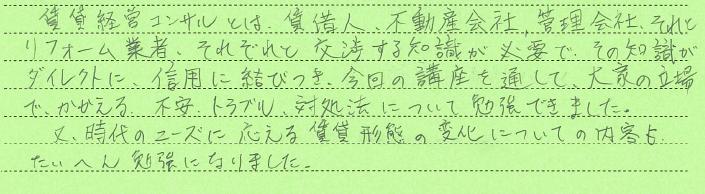 賃貸経営コンサルとは、賃借人、不動産会社、管理会社、それと
リフォーム業者、それぞれと交渉する知識が必要で、その知識が
ダイレクトに、信用に結びつき、今回の講座を通して、大家の立場
で、かかえる、不安、トラブル、対処法について勉強できました。
又、時代のニーズに応える賃貸形態の変化についての内容も、
たいへん勉強になりました。